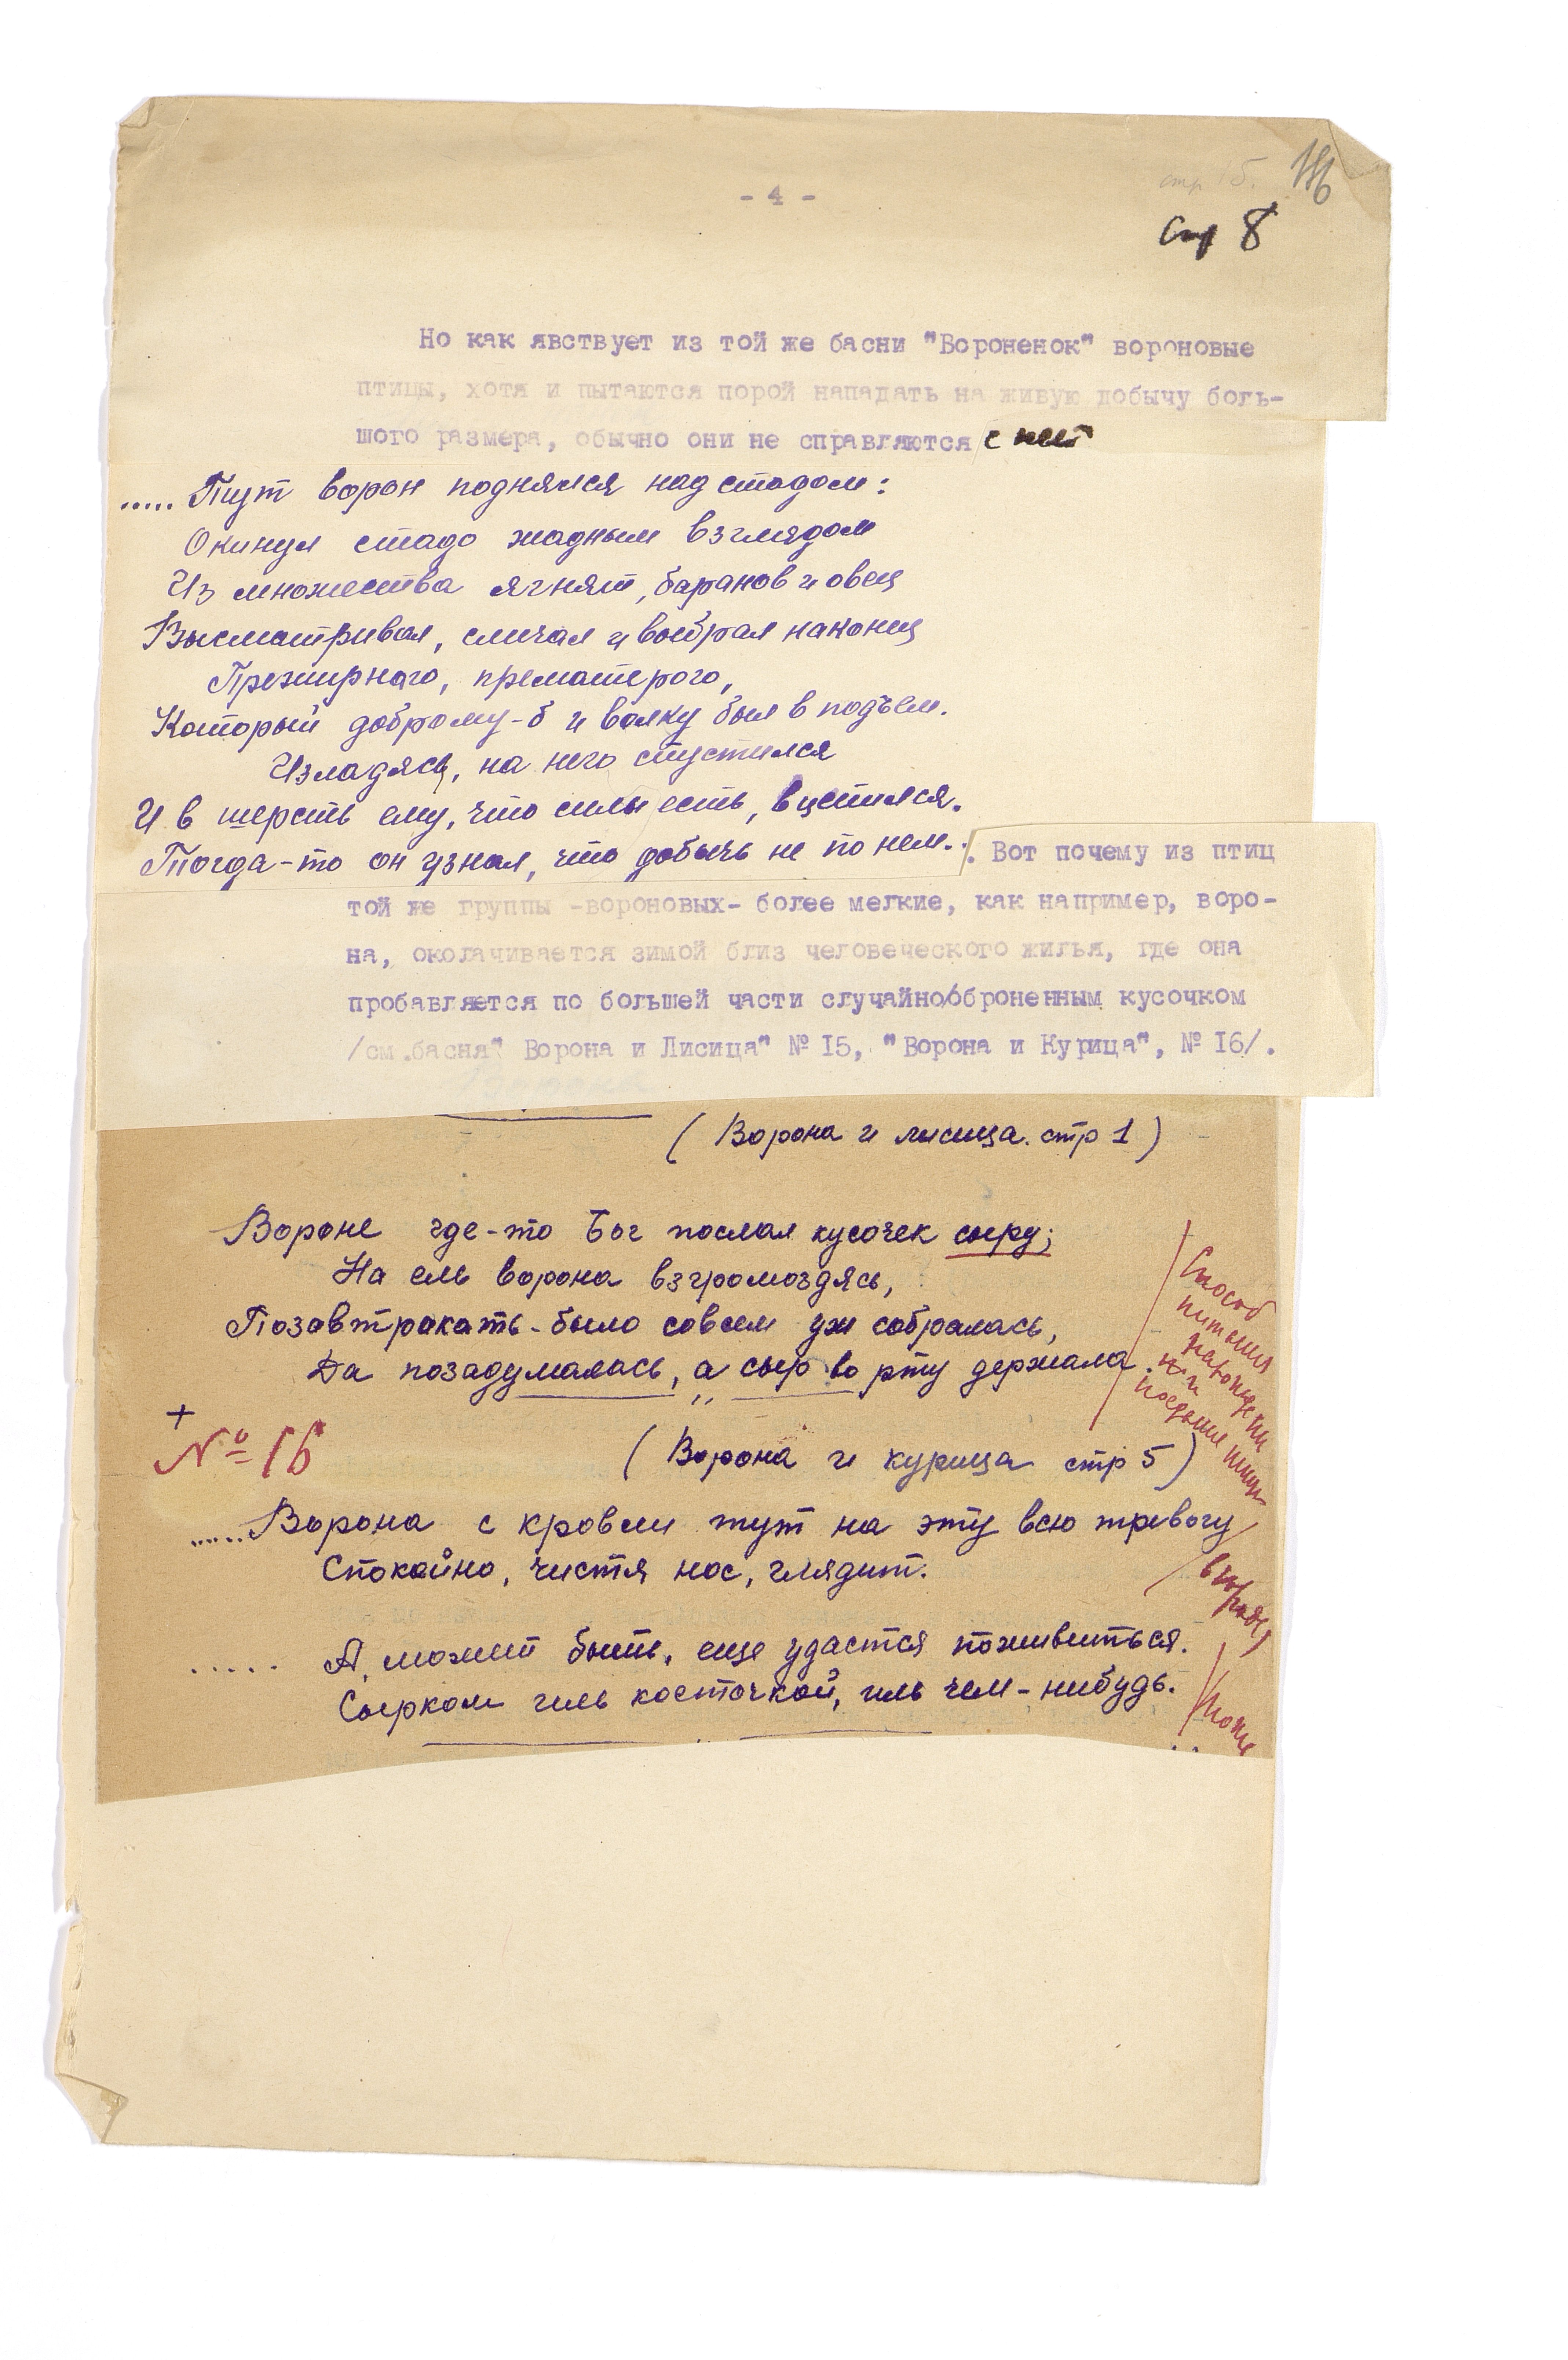 - 4 -
стр 15.
Стр 8
Но как явствует из той же басни "Вороненок" вороновые
птицы, хотя и пытаются порой нападать на живую добычу боль-
шого размера, обычно они не справляются с ней
..... Тут ворон поднялся над стадом:
Окинул стадо жадным взглядом
Из множества ягнят, баранов и овец
Высматривал, сличал и выбрал наконец
Прежирного, прематерого,
Который доброму-б и волку был в подъем.
Изладясь, на него спустился
И в шерсть ему, что силы есть, вцепился.
Тогда-то он узнал, что добычь не по нем..
. Вот почему из птиц
той же группы -вороновых- более мелкие, как например, воро-
на, околачивается зимой близ человеческого жилья, где она
пробавляется по большей части случайно/оброненным кусочком
/см.басня" Ворона и Лисица" № 15, "Ворона и Курица", № 16/.
( Ворона и лисица. стр 1 )
Вороне где-то Бог послал кусочек сыру;
На ель ворона взгромоздясь,
Позавтракать-было совсем уж собралась,
Да позадумалась, а сыр во рту держала.
Способ
питания
нахожден
поедание пищи
+
№ 16
( Ворона и курица стр 5 )
.....Ворона с кровли тут на эту всю тревогу
Спокойно, чистя нос, глядит.
..... А, может быть, еще удастся поживиться.
Сырком иль косточкой, иль чем-нибудь.